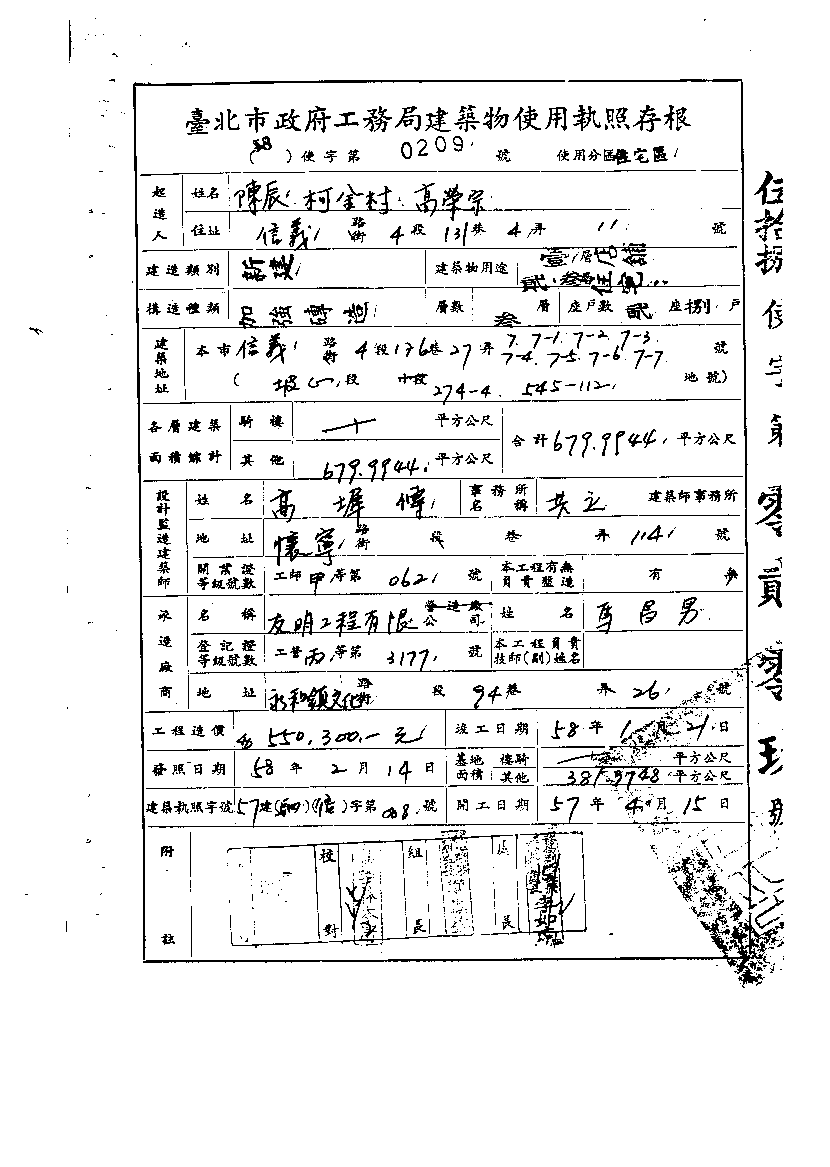 臺北市政府工務局建築物使用執照存根
(58)使字第0209號 使用分區住宅區
起造人 姓名 陳辰 柯金村 高榮宗
住址 信義路街4段131巷4弄11號
建造類別 新建 建築物用途 壹層店舖 貳.叁層住宅
構造種類 加強磚造 層數 叁層 座戶數 貳座捌戶
建築地址 本市信義路街4段176巷27弄7.7-1.7-2.7-3 7-4.7-5.7-6.7-7號
(坡心段 小段 274-4. 545-112 地號)
各層建築面積總計 騎樓 平方公尺 合計679.9944平方公尺
其他 679.9944平方公尺
設計監造建築師 姓名 高 事務所名稱 共立 建築師事務所
地址 懷寧路街 段 巷 弄 114號
開業證等級號數 工師甲等第0621號 本工程有無負責監造 有 無
承造廠商 名稱 友明工程有限營造廠公司 姓名 馬昌男
登記證等級號數 工營丙等第3177號 本工程負責技師(副)姓名
地址 永和鎮文化路街 段94巷 弄26號
工程造價 550,300.-元 竣工日期 58年1月21日
發照日期 58年2月14日 基地面積 樓騎 平方公尺 其他 381.9748平方公尺
建築執照字號 57建()()字第008號 開工日期 57年4月15日
附註 校對 組長 區長
伍拾捌使字第零貳零玖號